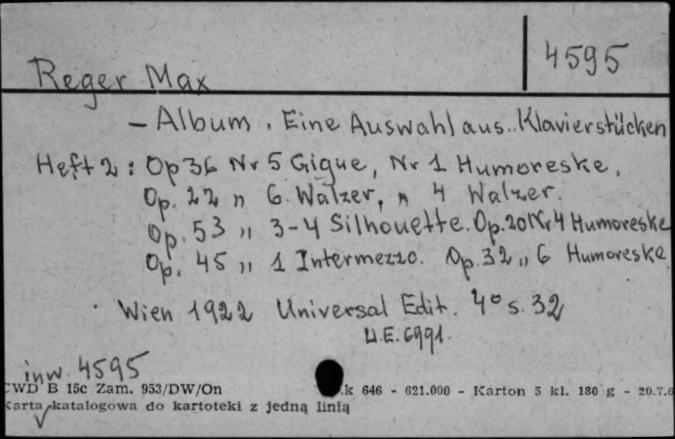 4595
Reger Max
- Album. Eine Auswahl aus.. Klavierstücken
Heft 2: Op 36 Nr 5 Gigue, Nr 1 Humoreske,
Op. 22 " 6. Walzer, " 4 Walzer.
Op. 53 " 3-4 Silhouette. Op. 20 Nr 4 Humoreske
Op. 45 " 1 Intermezzo. Op. 32 " 6 Humoreske
Wien 1922 Universal Edit. 4° s. 32
U.E. 6991.
inw. 4595
CWD B 15c Zam. 953/DW/On k 646 - 621.000 - Karton 5 kl. 180 g - 20.7.6
Karta katalogowa do kartoteki z jedną linią